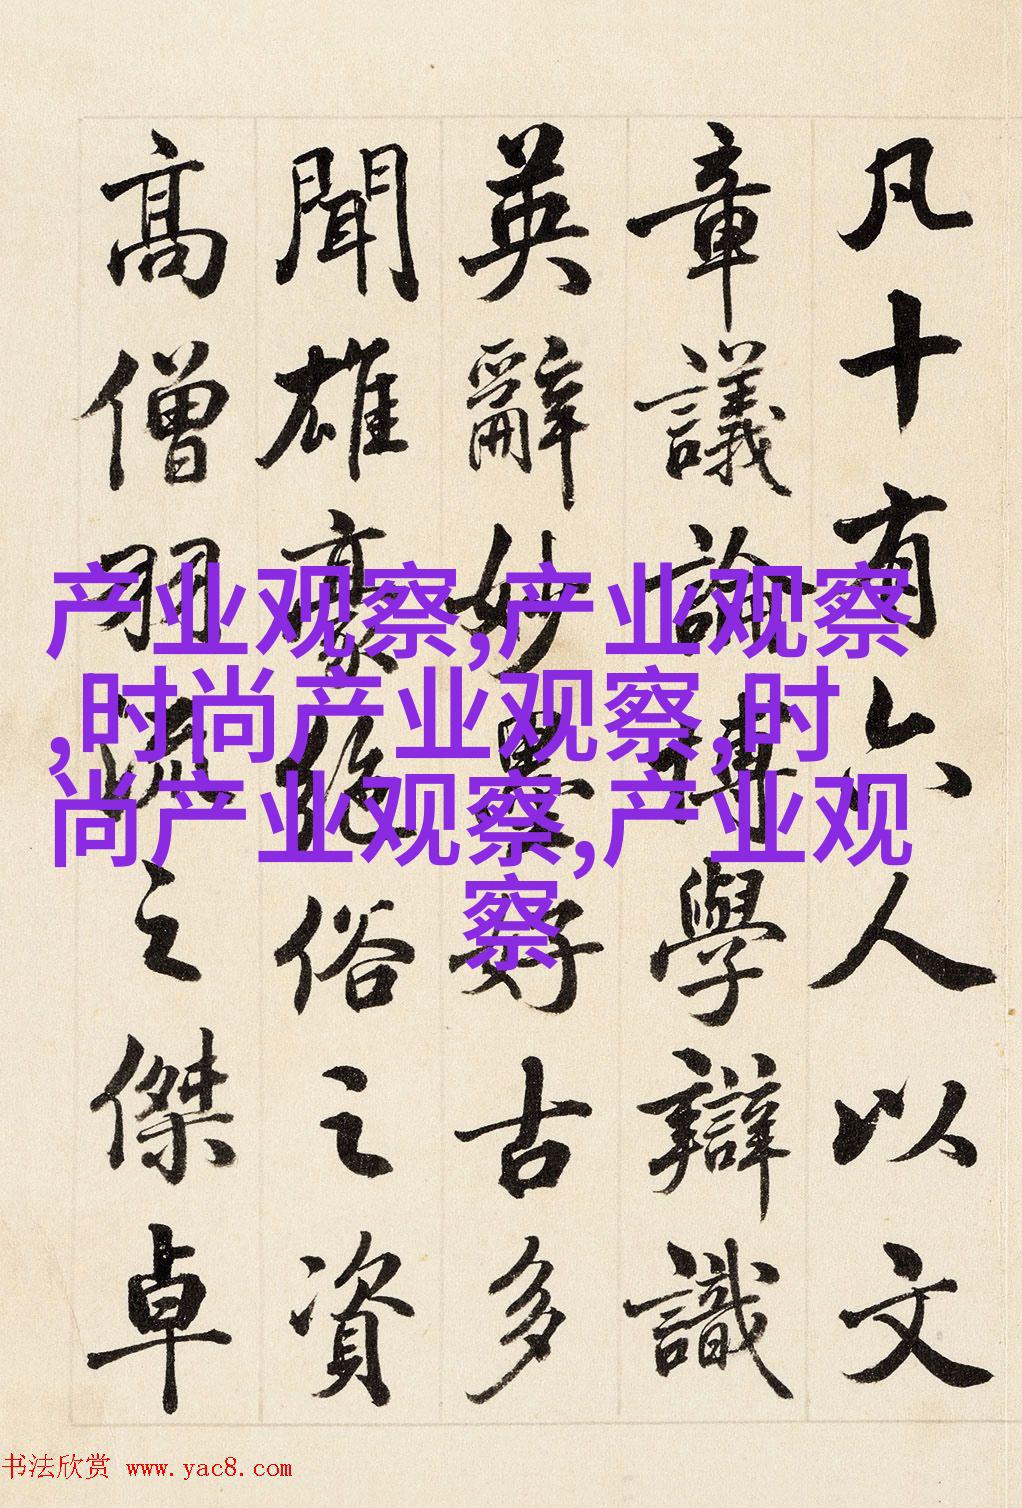 凡十有六人以文
章議論博學辯識
英辭妙墨好古多
聞雄豪絕俗之資
高僧羽流之傑卓
产业观察,产业观察
,时尚产业观察,时
尚产业观察,产业观
察
书法欣赏 www.yac8.com